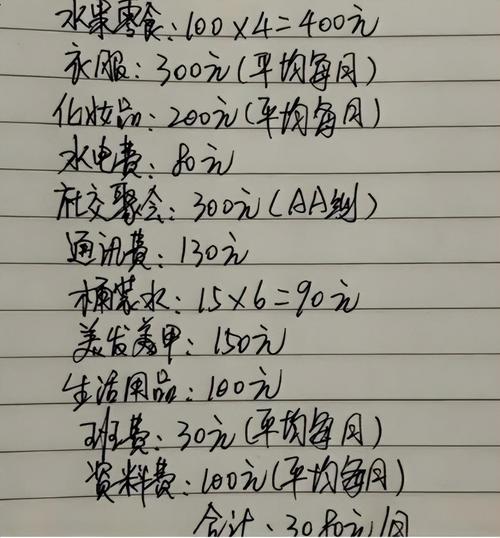 水果零食:100×4=400元
衣服:300元(平均每月)
化妆品:200元(平均每月)
水电费:80元
社交聚会:300元(AA制)
通讯费:130元
桶装水:15×6=90元
美发美甲:150元
生活用品:100元
班费:30元(平均每月)
资料费:100元(平均每月)
合计:3080元/月